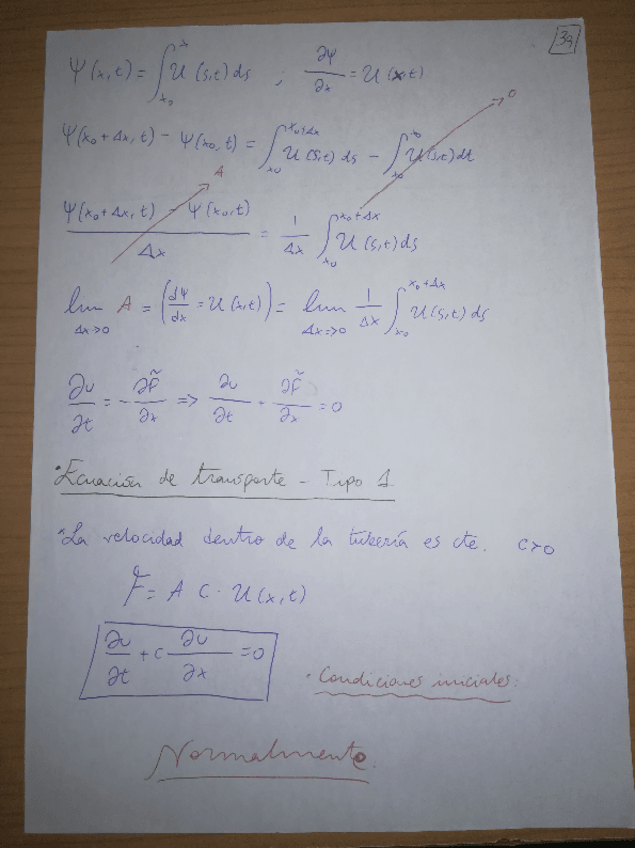 39
Ψ(x,t) = ∫_{x₀}^{x} U(s,t) ds ; ∂Ψ/∂x = U(x,t)
Ψ(x₀+Δx, t) − Ψ(x₀, t) = ∫_{x₀}^{x₀+Δx} U(s,t) ds − ∫_{x₀}^{x₀} U(s,t) dt → 0
(Ψ(x₀+Δx, t) − Ψ(x₀,t)) / Δx = 1/Δx ∫_{x₀}^{x₀+Δx} U(s,t) ds
A
lim_{Δx→0} A = (dΨ/dx = U(x,t)) = lim_{Δx→0} 1/Δx ∫_{x₀}^{x₀+Δx} U(s,t) ds
∂u/∂t = - ∂F̃/∂x => ∂u/∂t - ∂F̃/∂x = 0
·Ecuación de transporte - Tipo 1
*La velocidad dentro de la tubería es cte. c>0
F̃ = A C · U(x,t)
∂u/∂t + c ∂u/∂x = 0
· Condiciones iniciales:
Normalmente.